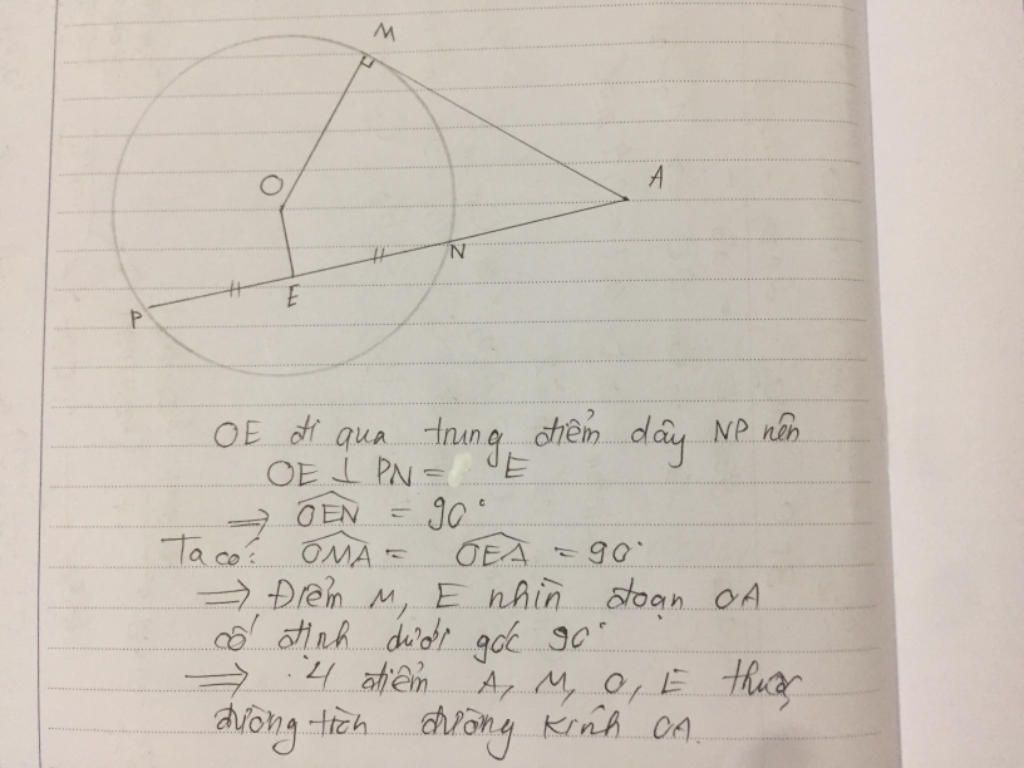 M
O
A
N
E
P
OE đi qua trung điểm dây NP nên
OE ⊥ PN = E
⇒ OEN = 90°
Ta có: OMA = OEA = 90°
⇒ Điểm M, E nhìn đoạn OA
cố định dưới góc 90°
⇒ 4 điểm A, M, O, E thuộc
đường tròn đường kính OA.